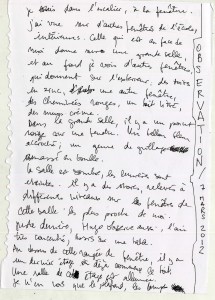 je suis dans l'escalier, à la fenêtre.
j'ai vue sur d'autres fenêtres de l'école,
intérieures. Celle qui est en face de
moi donne une grande salle,
et au fond je vois d'autres fenêtres,
qui donnent sur l'extérieur. des toits
en zinc, une autre fenêtre,
des cheminées rouges, un toit
des murs crème.
dans la grande salle, il y a un
rouge sur une fenêtre. Un ballon
accroché, un genre de
en boule.
la salle est sombre, les lumières sont
éteintes. Il y a des stores, relevés à
différents niveaux sur les fenêtres de
cette salle. la plus proche de moi.
juste derrière, Hugo observe aussi, l'air
très concentré,
Au dessus de cette rangée de fenêtre, il y a
un dernier étage et déjà commence le toit
Une salle de
je n'en vois que le plafond, les
OBSERVATION /
7 MARS 2012